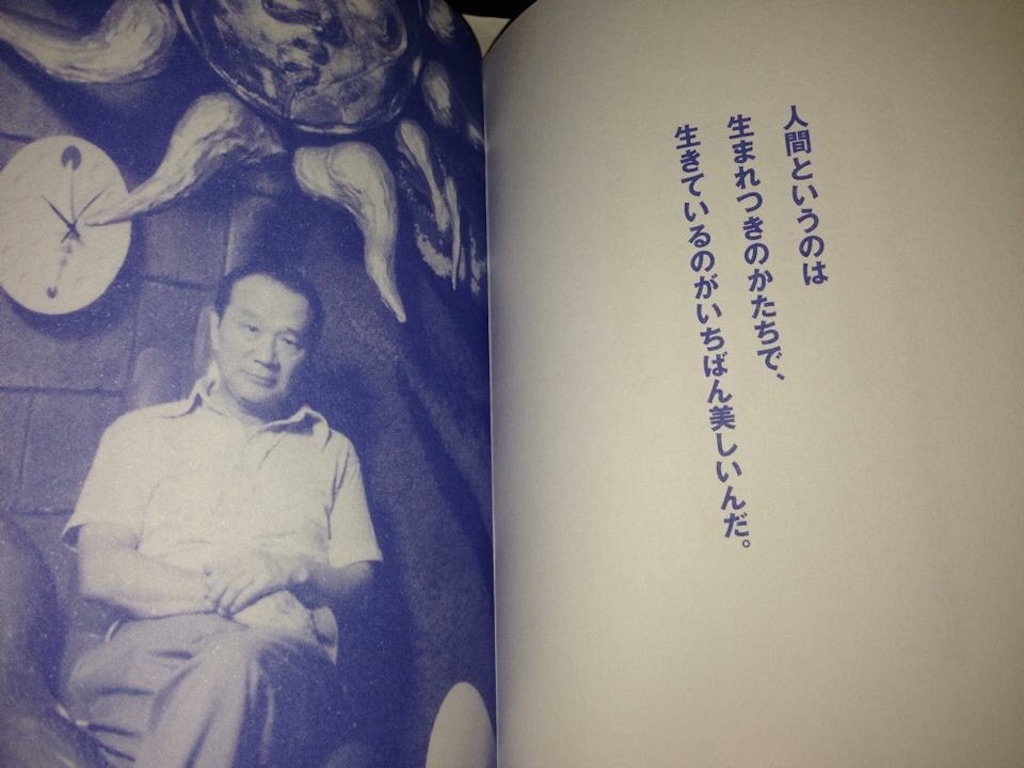 人間というのは
生まれつきのかたちで、
生きているのがいちばん美しいんだ。